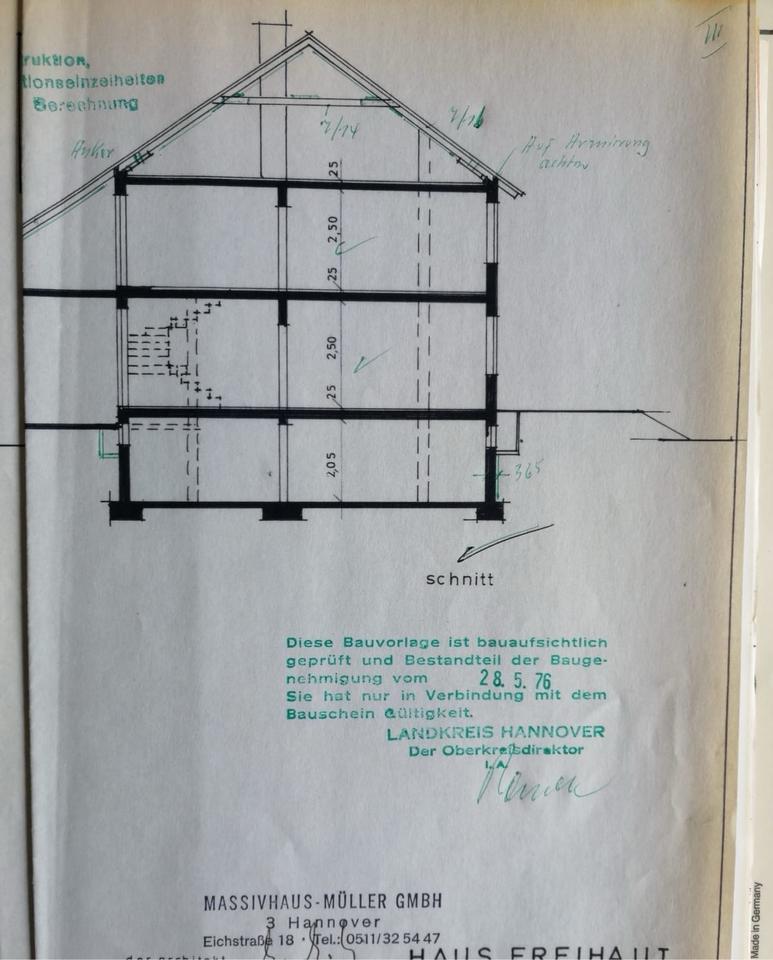 III
ruktion,
tionseinzelheiten
Berechnung
Anker
7/14
7/16
Auf Armierung
achten
25
2,50
25
2,50
25
2,05
365
schnitt
Diese Bauvorlage ist bauaufsichtlich
geprüft und Bestandteil der Bauge-
nehmigung vom 28. 5. 76
Sie hat nur in Verbindung mit dem
Bauschein Gültigkeit.
LANDKREIS HANNOVER
Der Oberkreisdirektor
I. A.
MASSIVHAUS-MÜLLER GMBH
3 Hannover
Eichstraße 18 · Tel.: 0511/32 54 47
der architekt
HAUS FREIHAUT
Made in Germany